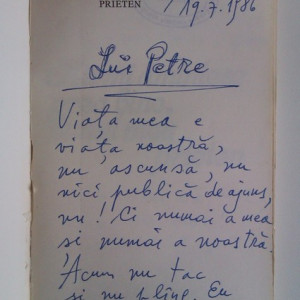 PRIETEN
19.7.1986
Lui Petre
Viața mea e
viața noastră,
nu ascunsă, nu
nici publică de ajuns,
nu! Ci numai a mea
și numai a noastră
Acum nu tac
și nu plîng. Eu